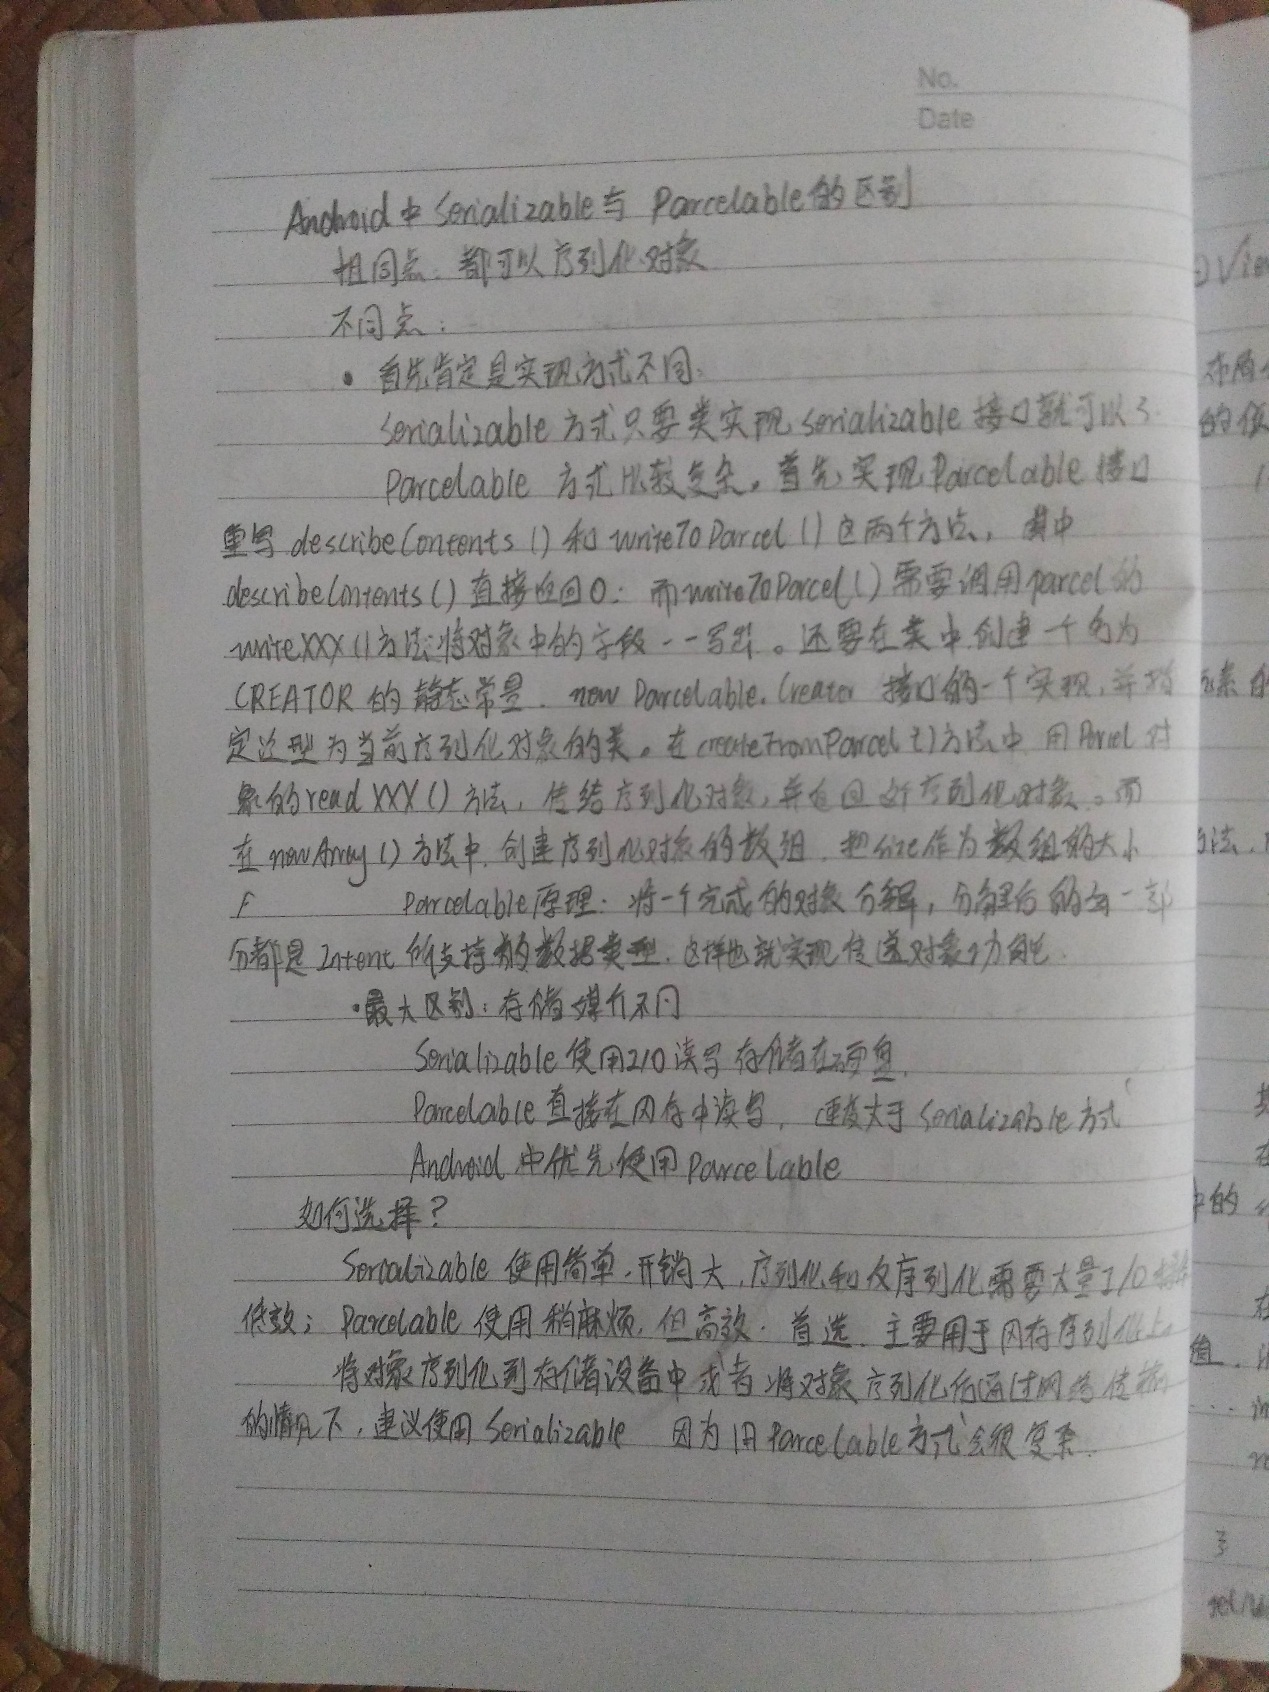 No.
Date
Android中Serializable与 Parcelable的区别
相同点：都可以序列化对象
不同点：
· 首先肯定是实现方式不同：
Serializable 方式只要类实现 Serializable 接口就可以了
Parcelable 方式比较复杂。首先实现Parcelable 接口
重写 describeContents () 和 writeToParcel () 这两个方法，其中
describeContents () 直接返回0；而writeToParcel () 需要调用parcel的
writeXXX ()方法将对象中的字段一一写出。还要在类中创建一个名为
CREATOR 的 静态常量．new Parcelable.Creator 接口的一个实现，并指
定泛型为当前序列化对象的类。在createFromParcel ()方法中 用Parcel对
象的readXXX () 方法，传给序列化对象，并返回这个序列化对象。而
在 newArray () 方法中，创建序列化对象的数组，把size作为数组的大小
Parcelable原理：将一个完成的对象分解，分解后的每一部
分都是 Intent 所支持的数据类型．这样也就实现传递对象功能．
·最大区别：存储媒介不同
Serializable 使用I/O读写 存储在硬盘．
Parcelable 直接在内存中读写，速度大于 Serializable 方式
Android 中优先使用 Parcelable
如何选择？
Seroalizable 使用简单．开销大，序列化和反序列化需要大量I/O操作
低效；Parcelable 使用稍麻烦．但高效．首选．主要用于内存序列化上
将对象序列化到存储设备中或者将对象序列化后通过网络传输
的情况下，建议使用Serializable 因为用Parcelable方式会很复杂．